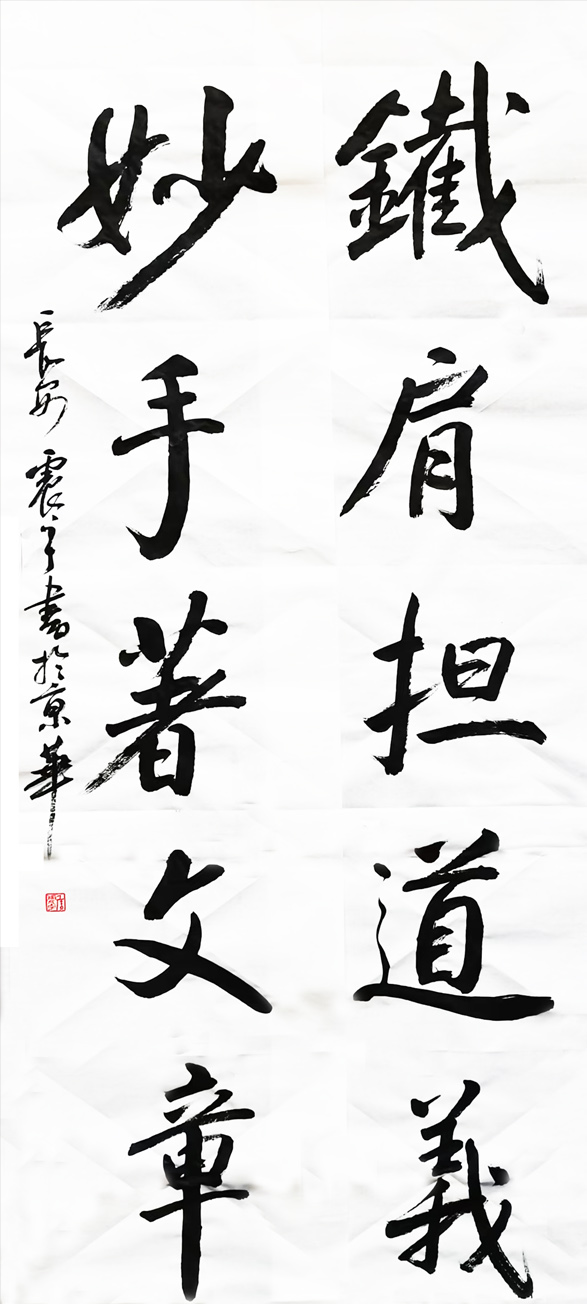 鐵肩担道義
妙手著文章
長安 震子書於京華